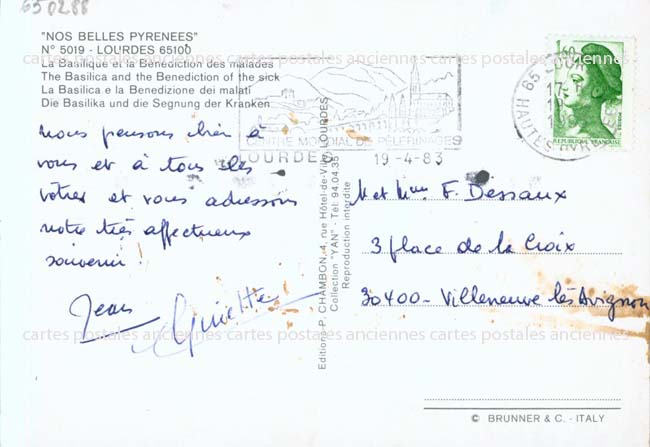 650288
"NOS BELLES PYRENEES"
N° 5019 - LOURDES 65100
La Basilique et la Bénédiction des malades
The Basilica and the Benediction of the sick
La Basilica e la Benedizione dei malati
Die Basilika und die Segnung der Kranken
nous pensons bien à
vous et à tous les
vôtres et vous adressons
notre très affectueux
souvenir !
Jean
Ginette
Editions P. CHAMBON, 4, rue Hôtel-de-Ville, LOURDES
Collection "YAN" - Tél. 94.04.35
Reproduction interdite
CENTRE MONDIAL DE PÈLERINAGES
LOURDES 19-4-83
65 LOURDES
HAUTES PYRENEES
1,60
REPUBLIQUE FRANÇAISE
M et Mme F. Dessaux
3 place de la Croix
30400 - Villeneuve lès Avignon
© BRUNNER & C. - ITALY
cartes postales anciennes cartes postales anciennes cartes postales anciennes
cartes postales anciennes cartes postales anciennes cartes postales anciennes
cartes postales anciennes cartes postales anciennes cartes postales anciennes